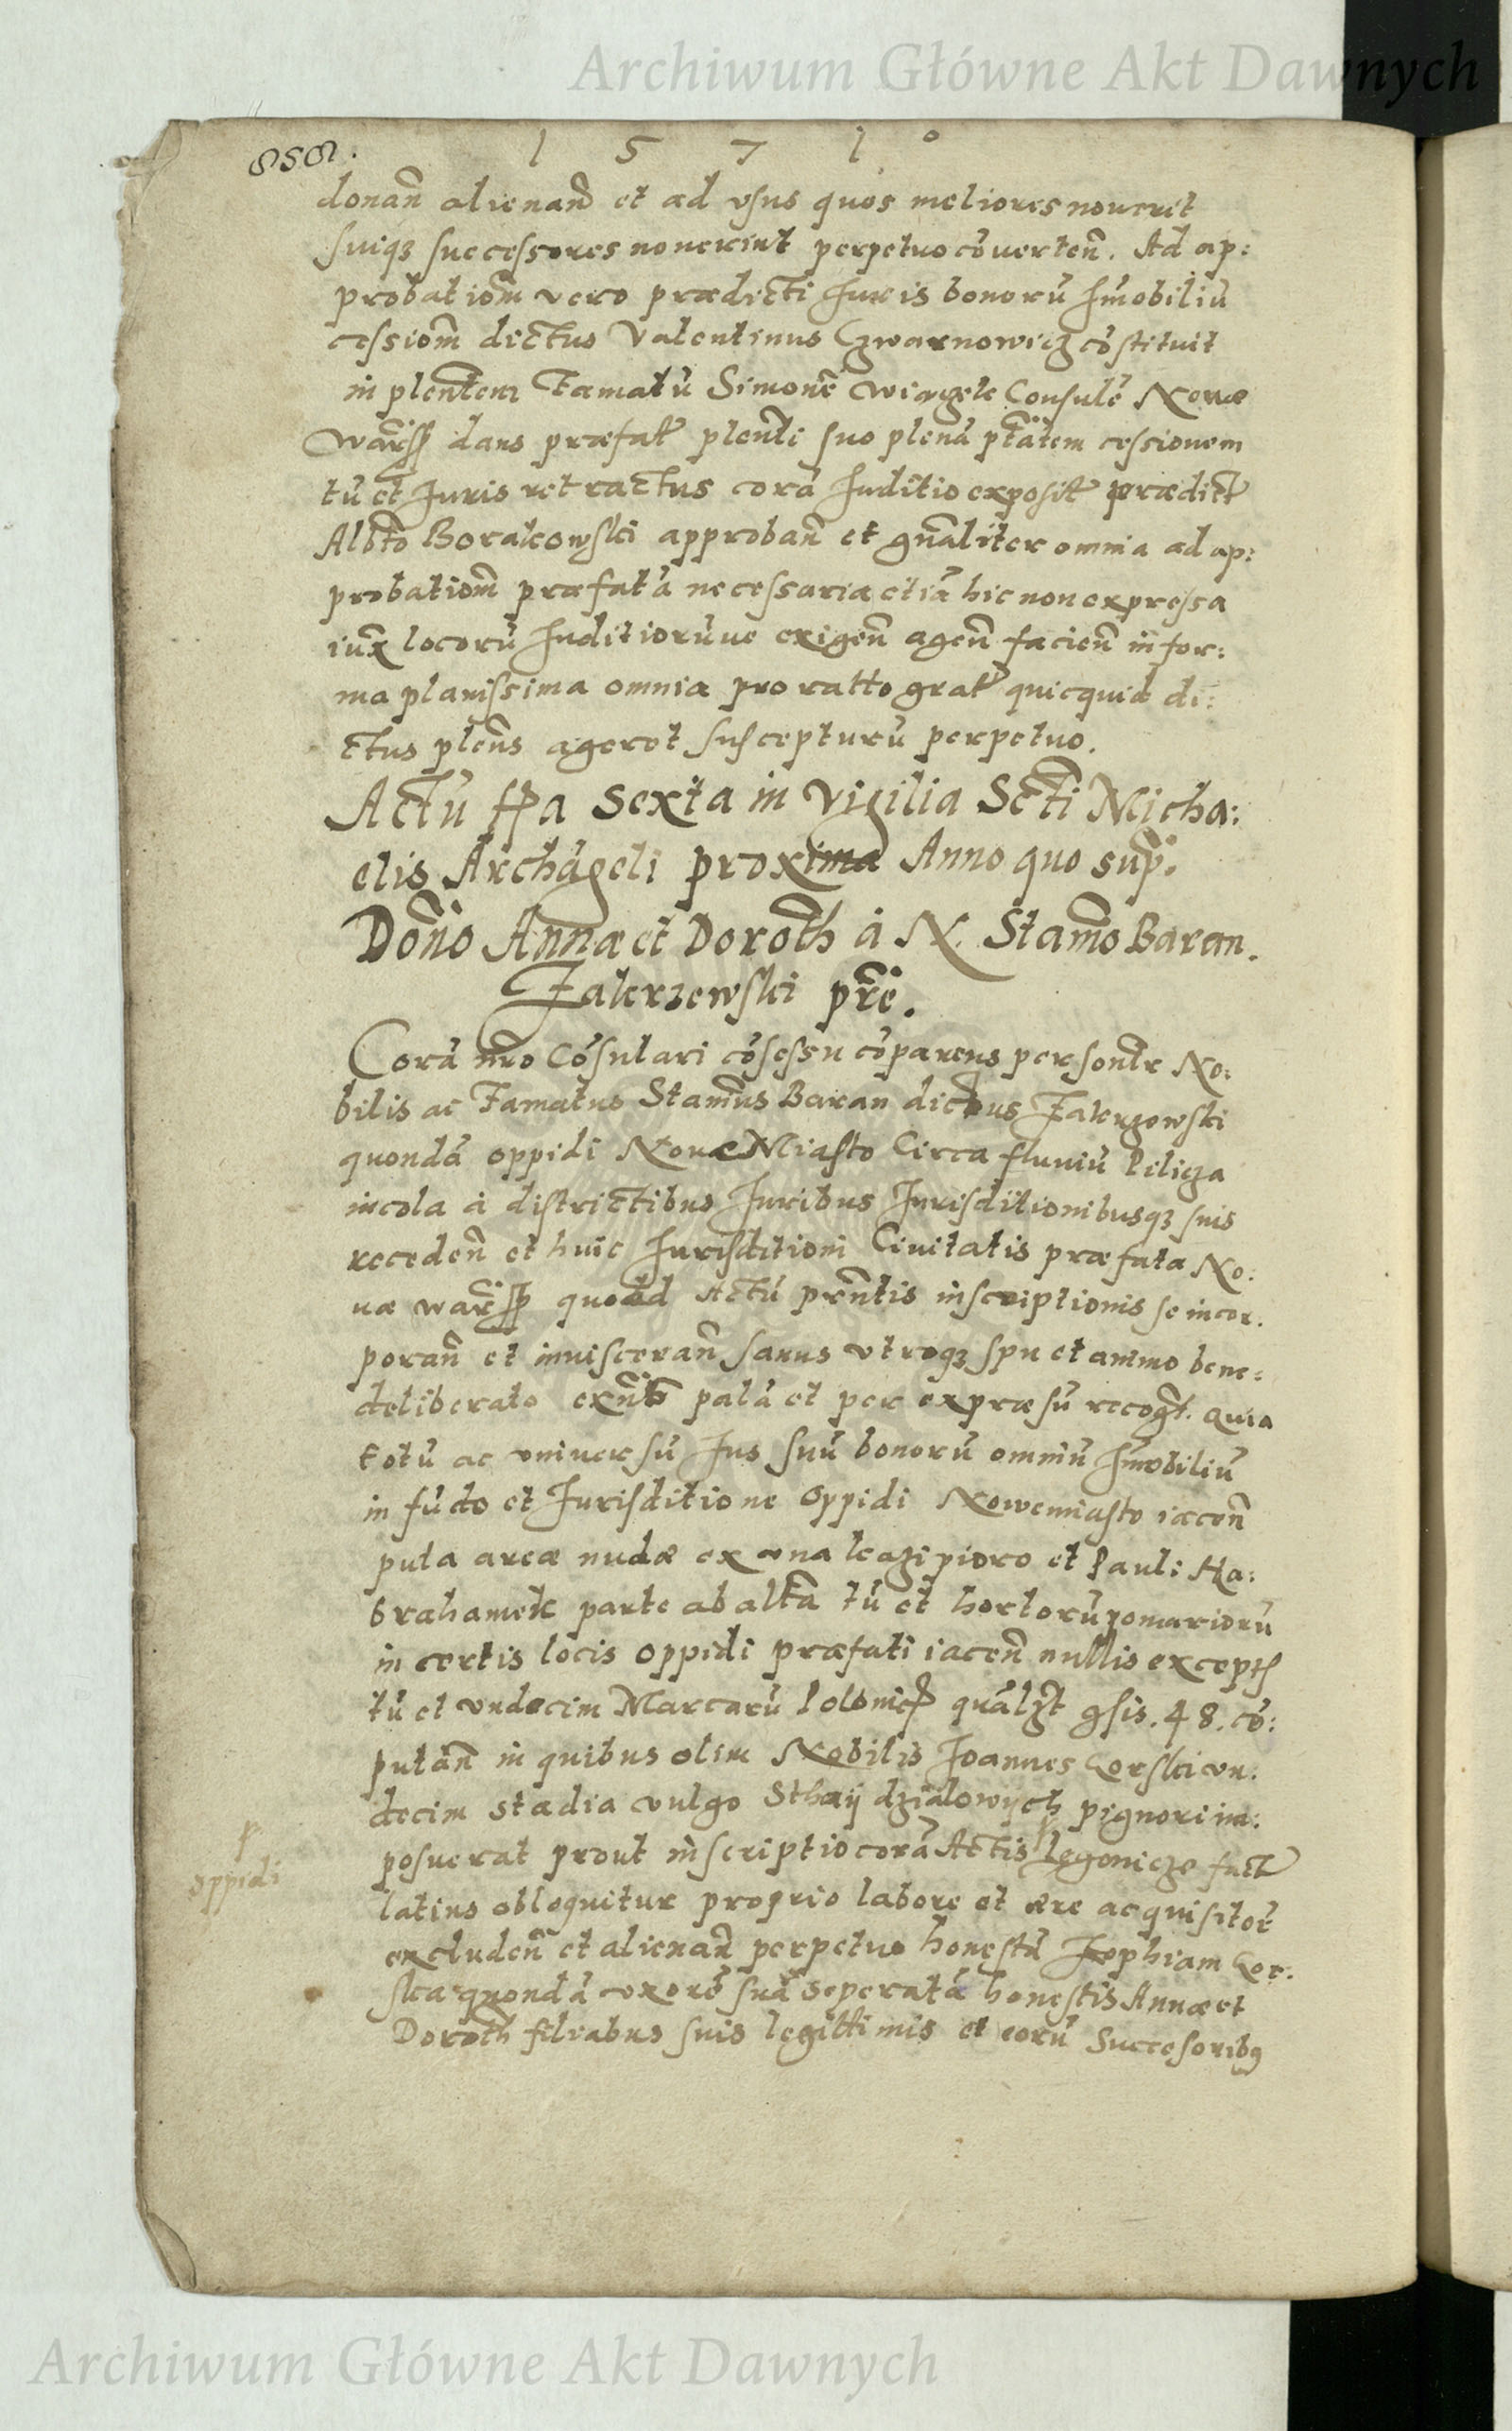 Archiwum Główne Akt Dawnych
858.
1 5 7 1º
donan̄ alienan̄ et ad vsus quos meliores nouerit
suiqȝ successores nouerint perpetuo cōuerten̄. Ad ap:
probatiōm vero prædicti Juris bonorū Imobiliū
cessiōm dictus Valentinus Czwarnowicz cōstituit
in plen̄tem Famatū Simonē Wingele Consulē Nouæ
Warsß dans præfat̄ plen̄ti suo plenā ptātem cessionem
tū et Juris retractus corā Juditio exposit̄ prædict̄
Albt̄o Borakowski approban̄ et gn̄aliter omnia ad ap:
probatiōm præfatā necessaria etiā hic non expressa
iux̄ locorū Juditiorūue exigen̄ agen̄ facien̄ in for:
ma planissima omnia pro ratto grat̄ quicquid di:
ctus plen̄s ageret suscepturū perpetuo.
Actū fꝛa sexta in vigilia Scti Micha:
elis Archāgeli proxima Anno quo sup̄.
Don̄o Annæ et Doroth̄ à N. Stam̄o Baran.
Zakrzewski pr̄e.
Corā nr̄o Cōsulari cōsessu cōparens persontr No:
bilis ac Famatus Stam̄us Baran dictus Zakrzewski
quondā oppidi Nouæ Miasto Circa fluuiū Pilicza
incola à districtibus Juribus Jurisditionibusqȝ suis
receden̄ et huic Jurisditioni Ciuitatis præfata No:
uæ warsß quoad Actū prn̄tis inscriptionis se incor:
poran̄ et inuisceran̄ sanus vtroqȝ spu et animo bene:
deliberato exn̄ts palā et per expræsū recogt̄. quia
totū ac vniuersū Jus suū bonorū omniū Imobiliū
in fūdo et Jurisditione Oppidi Nowemiasto iacen̄
puta areæ nudæ ex vna kazipioro et Pauli Ha:
brahamek parte ab alt̄a tū et hortorū pomariorū
in certis locis oppidi præfati iacen̄ nullis exceptis
tū et vndecim Marcarū Polonic̄ quālȝt gsis. 48. cō:
putan̄ in quibus olim Nobilis Joannes Gorski vn:
decim stadia vulgo Sthaij dzialowych pignori im:
posuerat prout inscriptio corā Actis Legonicze fact̄
oppidi
latius obloquitur proprio labore et ære acquisitor̄
excluden̄ et alienan̄ perpetuo honestā Zophiam Gor:
ska quondā vxorē suā seperatā honestis Annæ et
Doroth̄ filiabus suis legittimis et eorū Succesoribȝ
Archiwum Główne Akt Dawnych